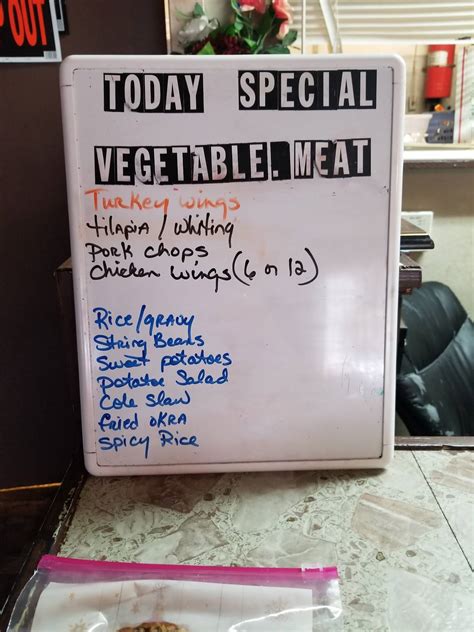 OUT
TODAY SPECIAL
VEGETABLE. MEAT
Turkey wings
tilapia / whiting
Pork chops
Chicken wings (6 or 12)
Rice/gravy
String Beans
Sweet potatoes
Potatoe Salad
Cole Slaw
fried OKRA
Spicy Rice